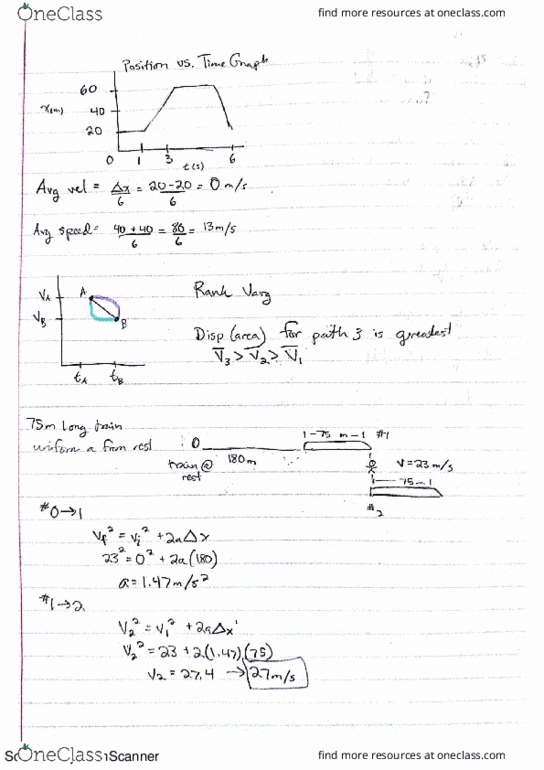 OneClass
find more resources at oneclass.com
Position vs. Time Graph
60
x(m) 40
20
0 1 3 6
t(s)
Avg vel = Δx/6 = 20-20/6 = 0 m/s
Avg speed = 40+40/6 = 80/6 = 13 m/s
VA A
VB B
tA tB
Rank Vavg
Disp (area) for path 3 is greatest
V̅3 > V̅2 > V̅1
75m long train
uniform a from rest
0 180m
train @
rest
1-75 m-1 #1
V=23 m/s
1-75m-1
#2
#0→1
Vf² = Vi² + 2aΔx
23² = 0² + 2a(180)
a = 1.47 m/s²
#1→2
V2² = V1² + 2aΔx'
V2² = 23 + 2(1.47)(75)
V2 = 27.4 → 27 m/s
OneClass
Scanner
find more resources at oneclass.com